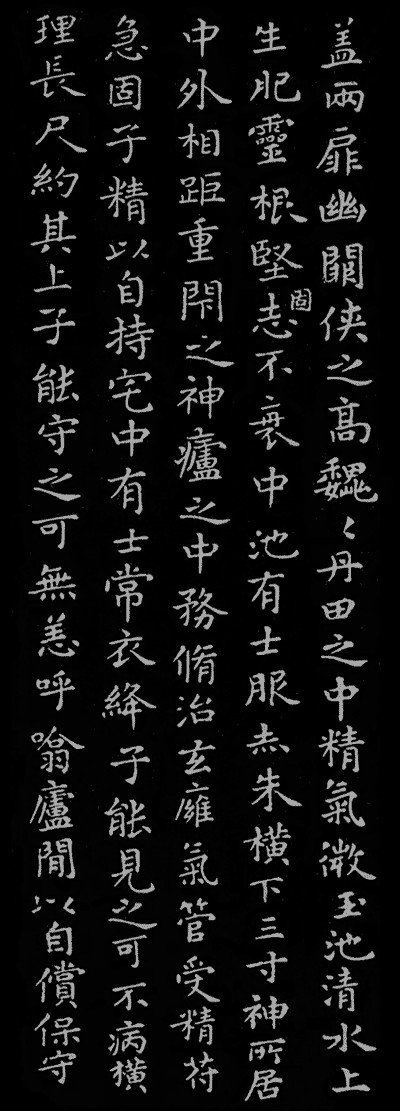 盖兩扉幽關俠之髙魏〻丹田之中精氣微玉池清水上
生肥靈根堅固志不衰中池有士服赤朱橫下三寸神所居
中外相距重閇之神廬之中務脩治玄廱氣管受精苻
急固子精以自持宅中有士常衣絳子能見之可不病橫
理長尺約其上子能守之可無恙呼噏廬間以自償保守